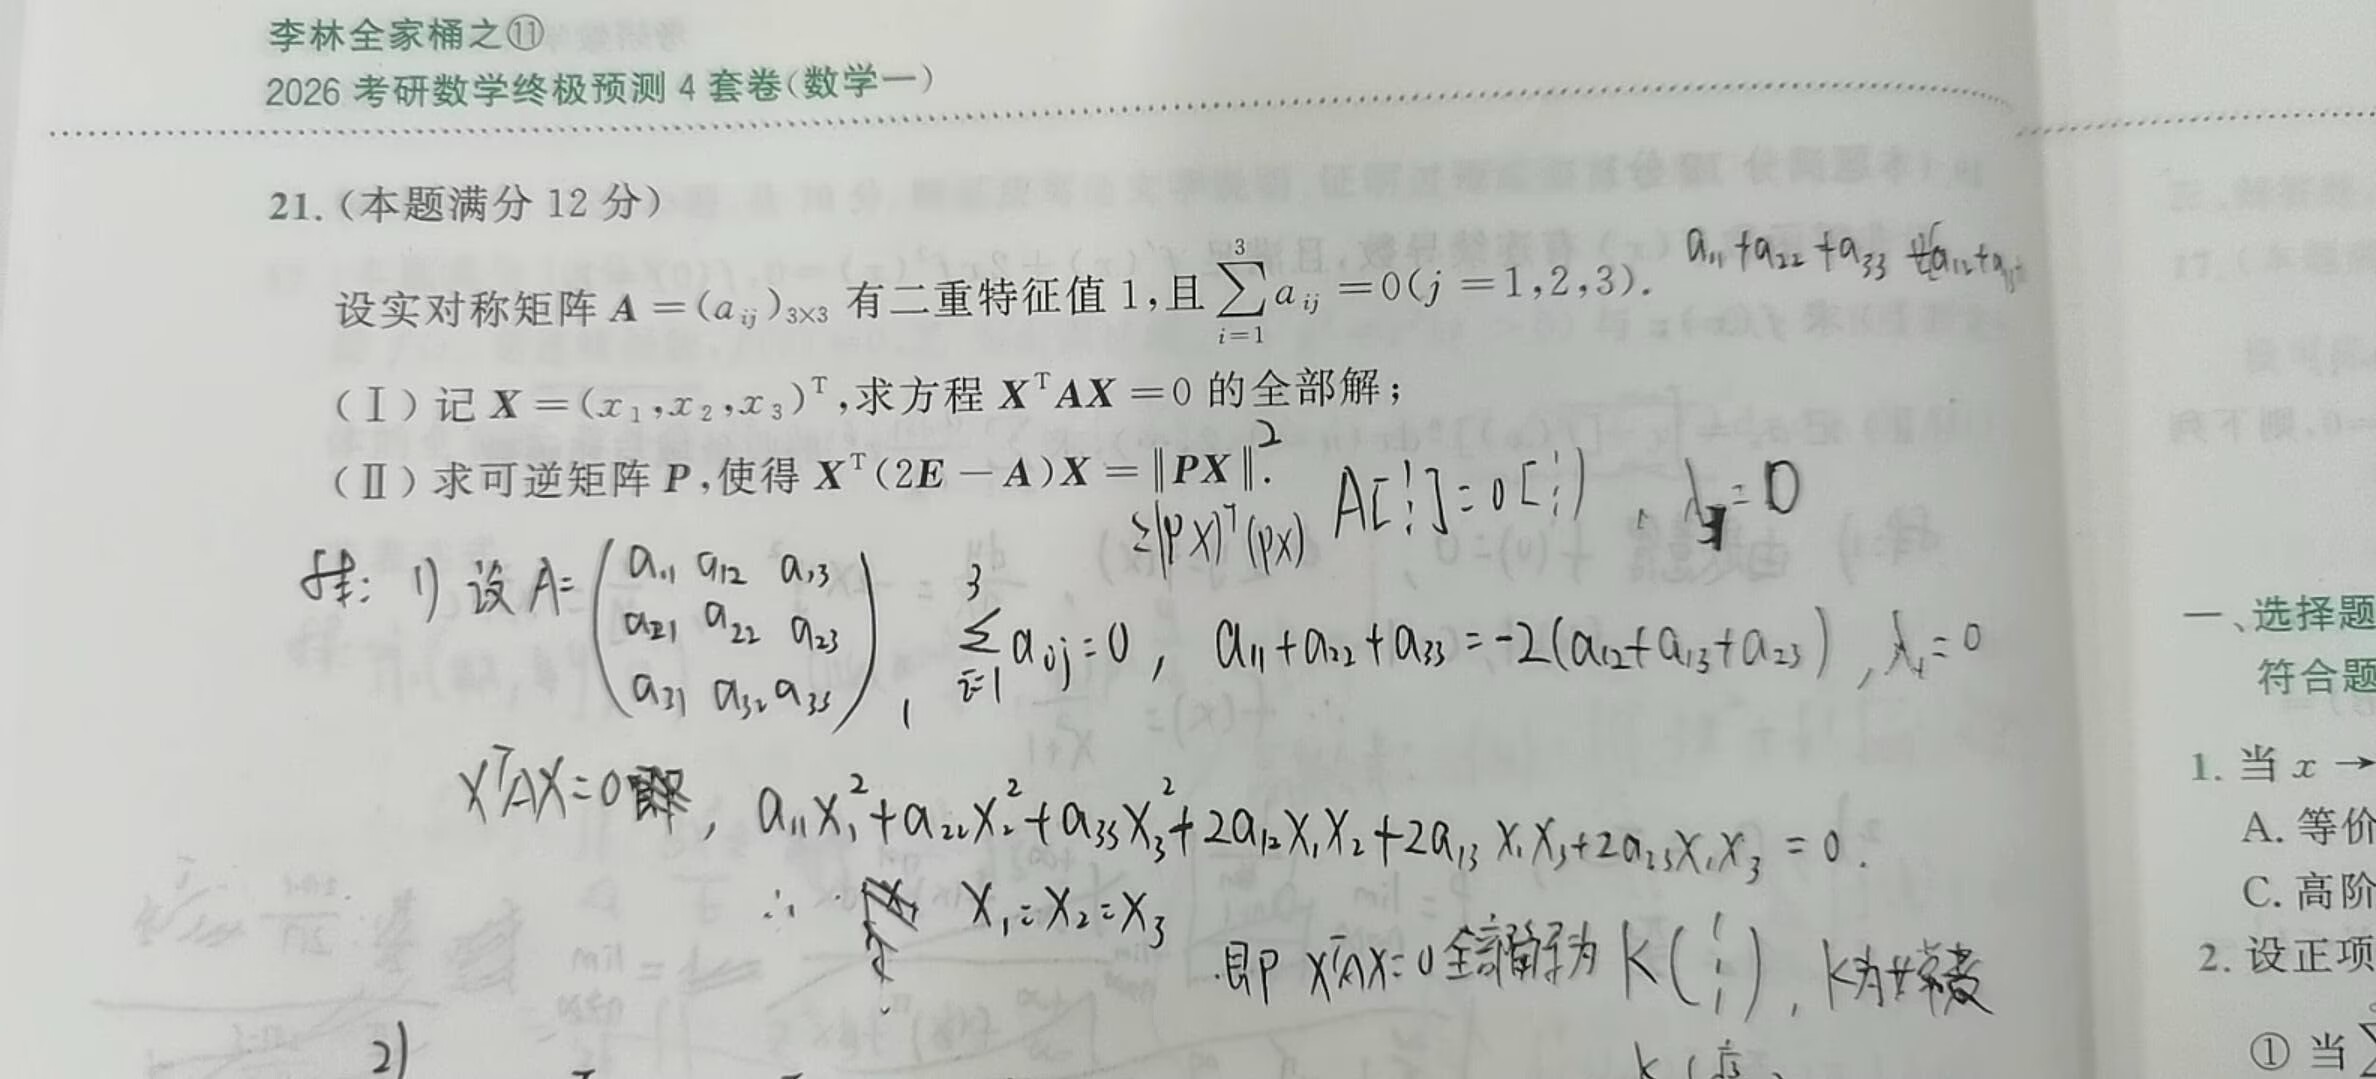 李林全家桶之⑪
2026 考研数学终极预测 4 套卷(数学一)
21.(本题满分 12 分)
a₁₁+a₂₂+a₃₃
设实对称矩阵 A=(a_{ij})_{3×3} 有二重特征值 1,且 \sum_{i=1}^{3} a_{ij}=0(j=1,2,3).
(Ⅰ)记 X=(x₁,x₂,x₃)^T,求方程 X^TAX=0 的全部解;
(Ⅱ)求可逆矩阵 P,使得 X^T(2E-A)X=‖PX‖².
(PX)^T(PX)
A[1 1 1]=0[1 1 1], λ=0
解: 1) 设 A=(a₁₁ a₁₂ a₁₃
a₂₁ a₂₂ a₂₃
a₃₁ a₃₂ a₃₃), \sum_{i=1}^{3} a_{ij}=0, a₁₁+a₂₂+a₃₃=-2(a₁₂+a₁₃+a₂₃), λ₁=0
X^TAX=0, a₁₁x₁²+a₂₂x₂²+a₃₃x₃²+2a₁₂x₁x₂+2a₁₃x₁x₃+2a₂₃x₁x₃=0.
∴ x₁=x₂=x₃
即 X^TAX=0全部解为 k(1 1 1), k为常数
2)
一、选择题
符合题
1. 当 x →
A. 等价
C. 高阶
2. 设正项
① 当